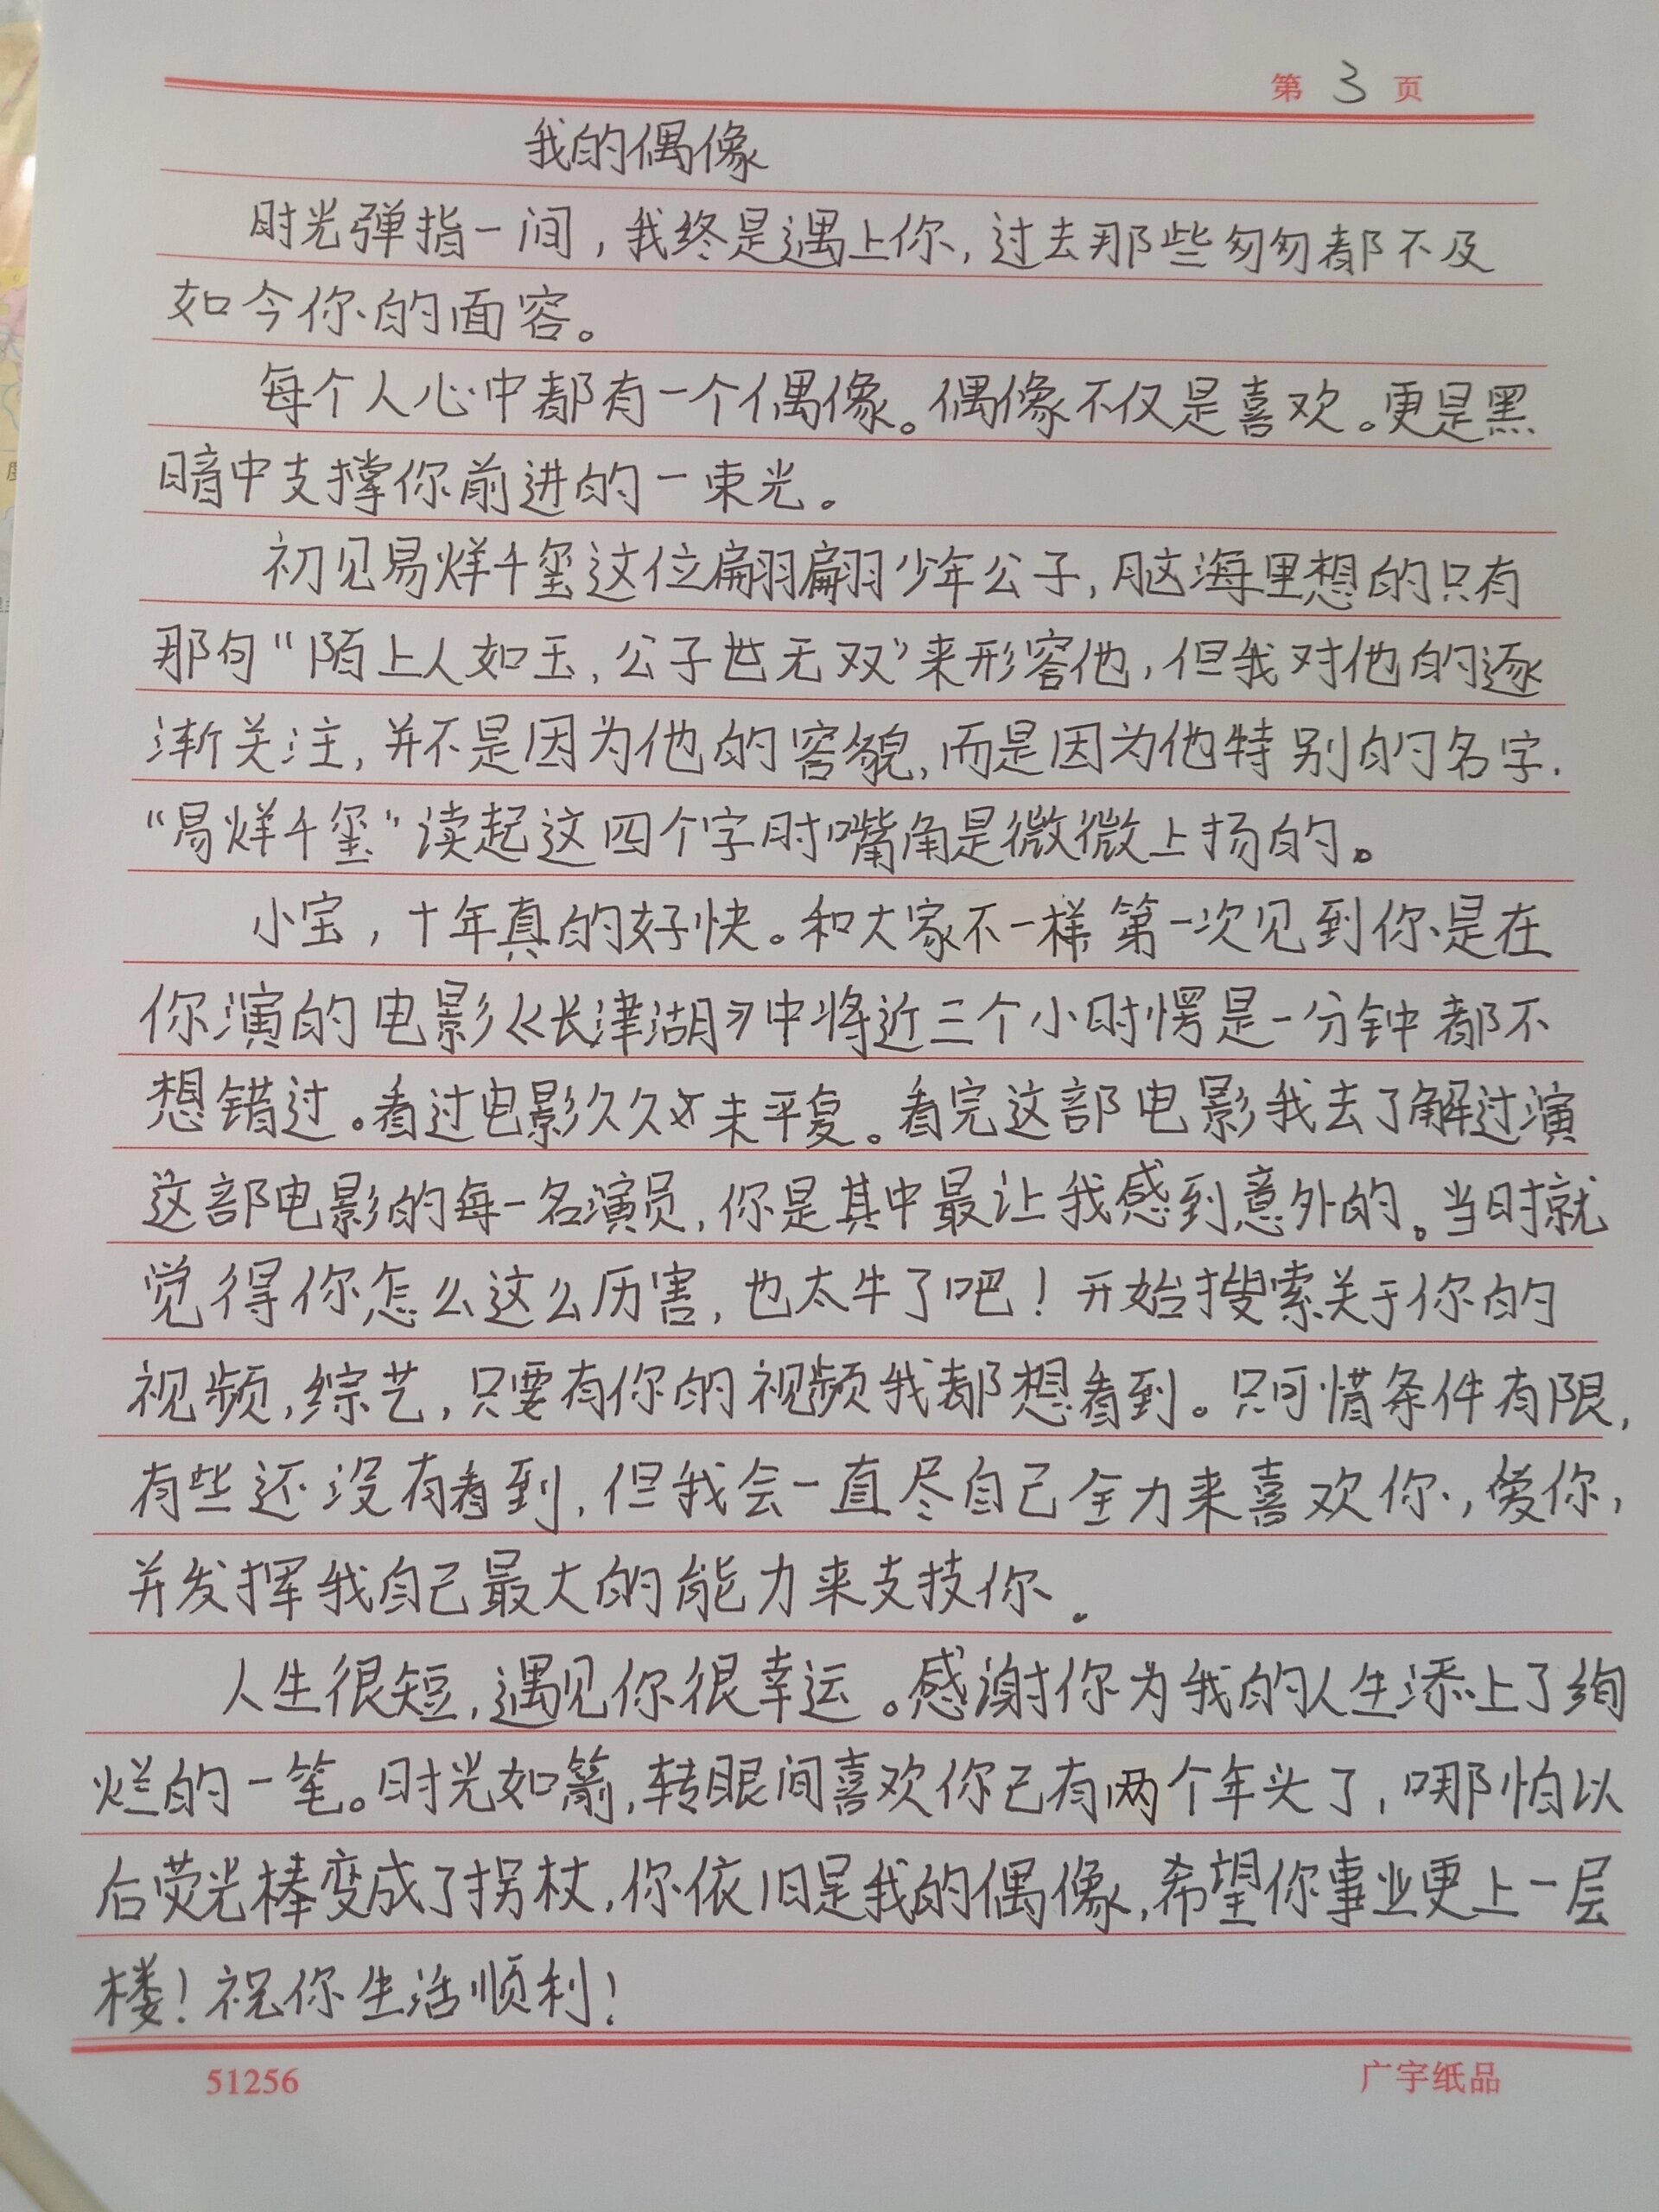 第 3 页
我的偶像
时光弹指一间，我终是遇上你，过去那些匆匆都不及
如今你的面容。
每个人心中都有一个偶像。偶像不仅是喜欢。更是黑
暗中支撑你前进的一束光。
初见易烊千玺这位翩翩少年公子，脑海里想的只有
那句“陌上人如玉，公子世无双”来形容他，但我对他的逐
渐关注，并不是因为他的容貌，而是因为他特别的名字.
“易烊千玺”读起这四个字时嘴角是微微上扬的。
小宝，十年真的好快。和大家不一样第一次见到你是在
你演的电影《长津湖》中将近三个小时愣是一分钟都不
想错过。看过电影久久未平复。看完这部电影我去了解过演
这部电影的每一名演员，你是其中最让我感到意外的。当时就
觉得你怎么这么历害，也太牛了吧！开始搜索关于你的
视频，综艺，只要有你的视频我都想看到。只可惜条件有限，
有些还没有看到，但我会一直尽自己全力来喜欢你，爱你，
并发挥我自己最大的能力来支技你.
人生很短，遇见你很幸运。感谢你为我的人生添上了绚
烂的一笔。时光如箭，转眼间喜欢你已有两个年头了，哪怕以
后荧光棒变成了拐杖，你依旧是我的偶像，希望你事业更上一层
楼！祝你生活顺利！
51256 广宇纸品